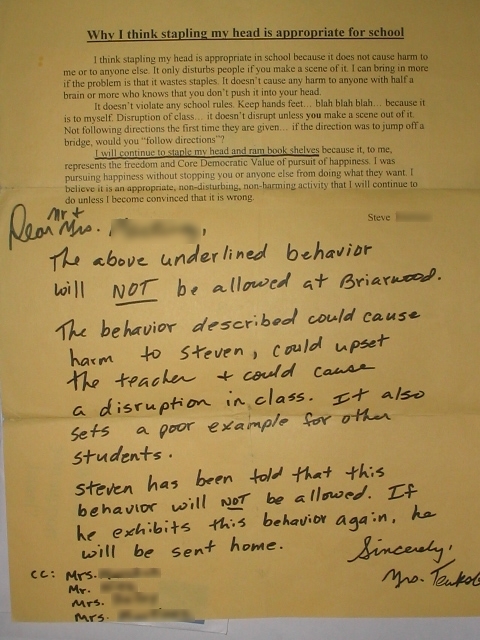 Why I think stapling my head is appropriate for school
I think stapling my head is appropriate in school because it does not cause harm to
me or to anyone else. It only disturbs people if you make a scene of it. I can bring in more
if the problem is that it wastes staples. It doesn't cause any harm to anyone with half a
brain or more who knows that you don't push it into your head.
It doesn't violate any school rules. Keep hands feet… blah blah blah… because it
is to myself. Disruption of class… it doesn't disrupt unless you make a scene out of it.
Not following directions the first time they are given… if the direction was to jump off a
bridge, would you "follow directions"?
I will continue to staple my head and ram book shelves because it, to me,
represents the freedom and Core Democratic Value of pursuit of happiness. I was
pursuing happiness without stopping you or anyone else from doing what they want. I
believe it is an appropriate, non-disturbing, non-harming activity that I will continue to
do unless I become convinced that it is wrong.
Steve
Dear Mr + Mrs.
The above underlined behavior
will NOT be allowed at Briarwood.
The behavior described could cause
harm to Steven, could upset
the teacher + could cause
a disruption in class. It also
sets a poor example for other
students.
Steven has been told that this
behavior will NOT be allowed. If
he exhibits this behavior again, he
will be sent home.
Sincerely,
Mrs.
cc: Mrs.
Mr.
Mrs.
Mrs.